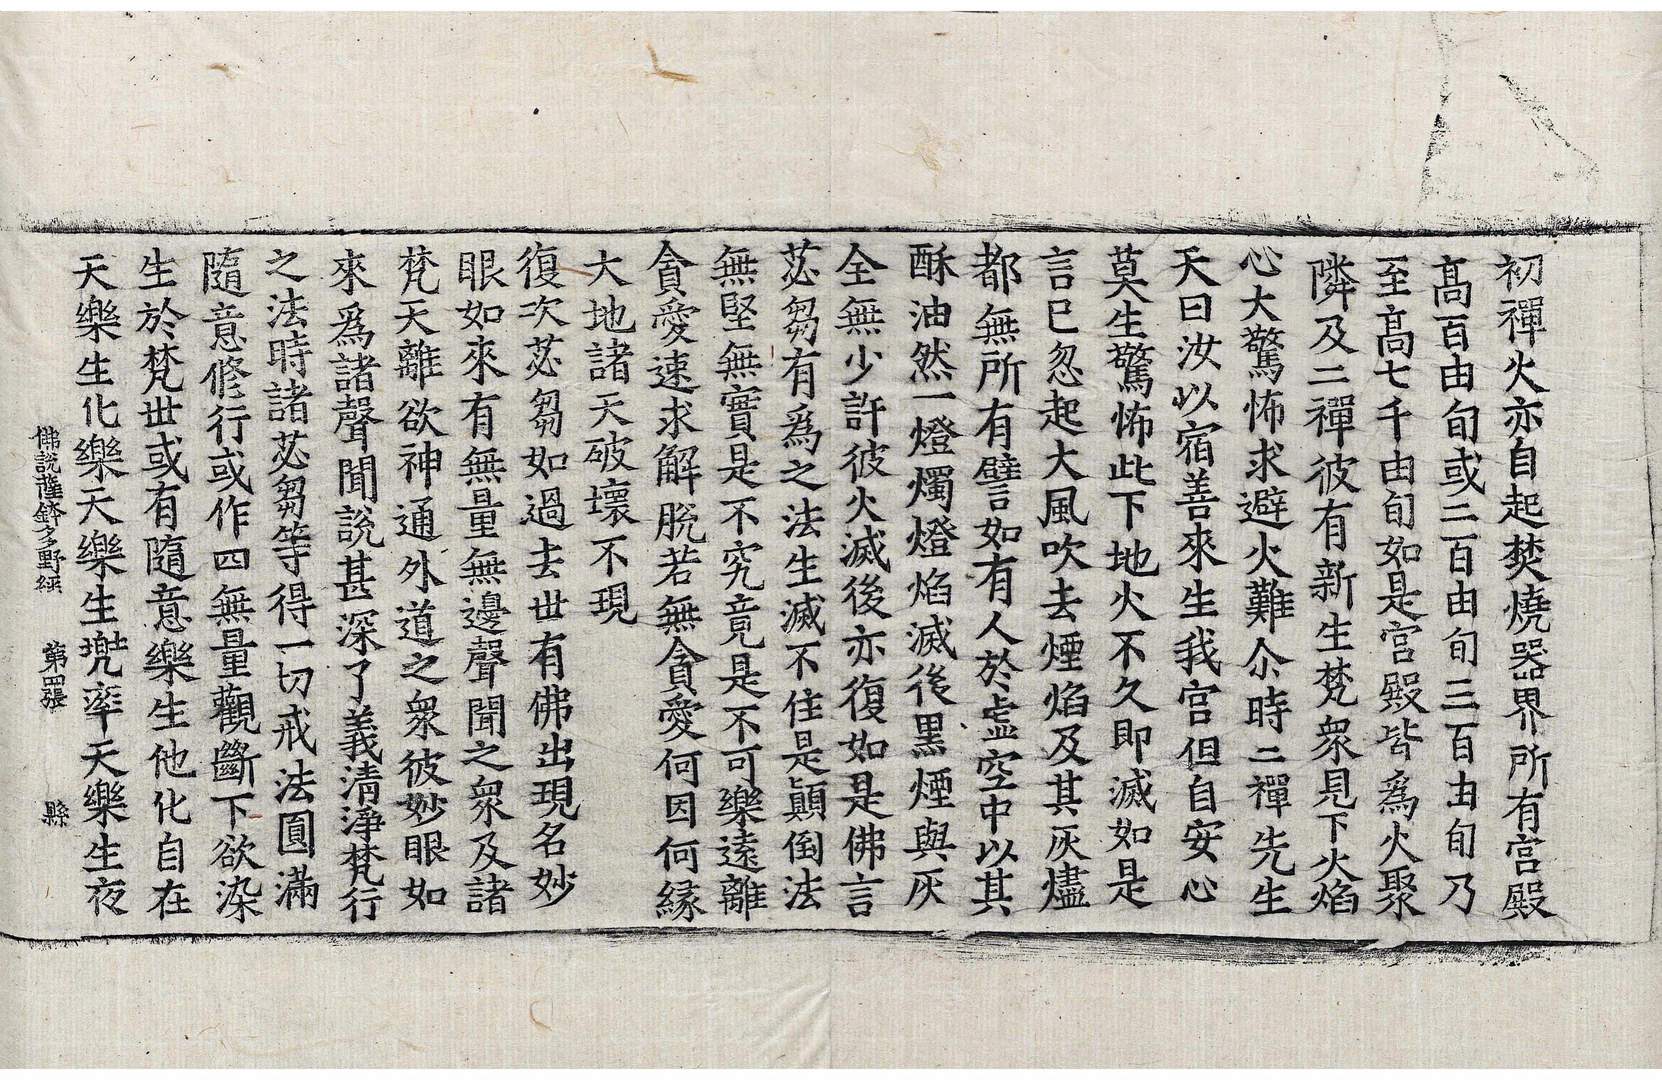 初禪火亦自起焚燒器界所有宮殿
高百由旬或二百由旬三百由旬乃
至高七千由旬如是宮殿皆為火聚
隣及二禪彼有新生梵衆見下火焰
心大驚怖求避火難尒時二禪先生
天曰汝以宿善來生我宮但自安心
莫生驚怖此下地火不久即滅如是
言已忽起大風吹去煙焰及其灰燼
都無所有譬如有人於虛空中以其
酥油然一燈燭燈焰滅後黑煙與灰
全無少許彼火滅後亦復如是佛言
苾芻有為之法生滅不住是顚倒法
無堅無實是不究竟是不可樂遠離
貪愛速求解脫若無貪愛何因何緣
大地諸天破壞不現
復次苾芻如過去世有佛出現名妙
眼如來有無量無邊聲聞之衆及諸
梵天離欲神通外道之衆彼妙眼如
來為諸聲聞說甚深了義清淨梵行
之法時諸苾芻等得一切戒法圓滿
隨意修行或作四無量觀斷下欲染
生於梵世或有隨意樂生他化自在
天樂生化樂天樂生兠率天樂生夜
佛說薩鉢多野經 第四張 縣